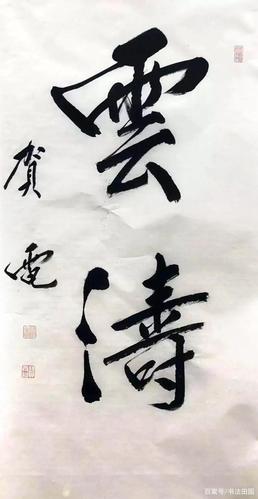 雲濤
賀電
百家号/书法田园